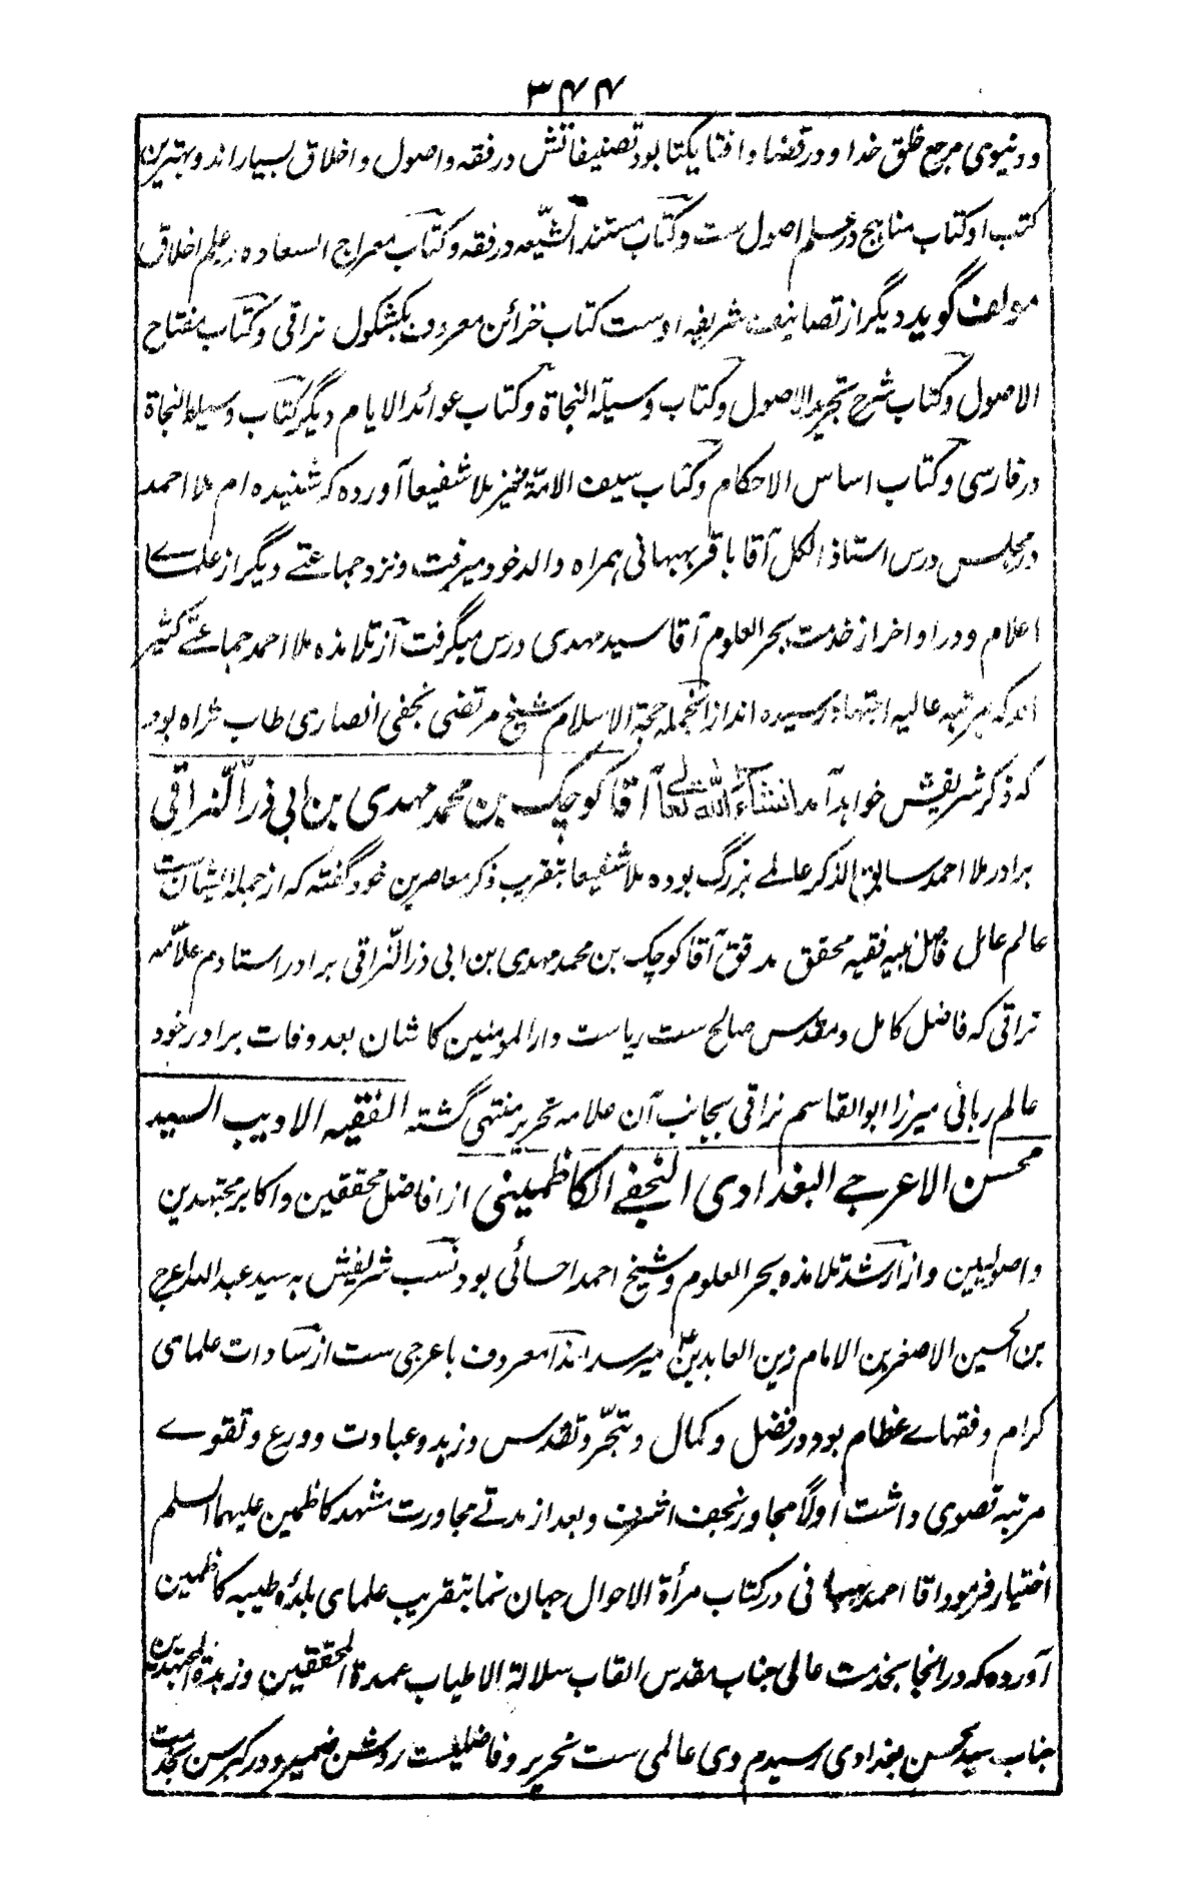 ۳۴۴
و دنیوی مرجع خلق خدا و در قضا و افتا یکتا بود تصنیفاتش در فقه و اصول و اخلاق بسیار اند و بهترین
کتب او کتاب مناهج در علم اصول ست و کتاب مستند الشیعه در فقه و کتاب معراج السعاده در علم اخلاق
مولف گوید دیگر از تصانیف شریفه اوست کتاب خزائن معروف بکشکول نراقی و کتاب مفتاح
الاصول و کتاب شرح تجرید الاصول و کتاب وسیلة النجاة و کتاب عوائد الایام دیگر کتاب وسیلة النجاة
در فارسی و کتاب اساس الاحکام و کتاب سیف الامّة و نیز ملا شفیعا آورده که شنیده ام ملا احمد
در مجلس درس استاذ الکل آقا باقر بهبهانی همراه والد خود میرفت و نزد جماعتے دیگر از علماے
اعلام و در اواخر از خدمت بحر العلوم آقا سید مهدی درس میگرفت از تلامذه ملا احمد جماعتے کثیر
اند که بمرتبه عالیه اجتهاد رسیده اند از انجمله حجة الاسلام شیخ مرتضی نجفی انصاری طاب ثراه بود
که ذکر شریفش خواهد آمد انشاء الله تعالی آقا کوچک بن محمد مهدی بن ابی ذر النّراقی
برادر ملا احمد سابق الذکر عالمے بزرگ بوده ملا شفیعا بتقریب ذکر معاصرین خود گفته که از جمله ایشان ست
عالم عامل فاضل نبیه فقیه محقق مدقق آقا کوچک بن محمد مهدی بن ابی ذر النّراقی برادر استادم علّامه
نراقی که فاضل کامل و مقدس صالح ست ریاست دار المومنین کاشان بعد وفات برادر خود
عالم ربانی میرزا ابوالقاسم نراقی بجانب آن علامه نحریر منتهی گشته الفقیه الادیب السید
محسن الاعرجے البغدادی النجفے الکاظمینی از افاضل محققین و اکابر مجتهدین
و اصولیین و از ارشد تلامذه بحر العلوم و شیخ احمد احسائی بود نسب شریفش به سید عبد الله اعرج
بن الحسین الاصغر بن الامام زین العابدینؑ میرسد لهذا معروف باعرجی ست از سادات علمای
کرام و فقهاے عظام بود در فضل و کمال و تبحّر و تقدس و زهد و عبادت و ورع و تقوے
مرتبه قصوی داشت اولًا مجاور نجف اشرف و بعد از مدتے مجاورت مشهد کاظمین علیهما السلم
اختیار فرمود اقا احمد بهبهانی در کتاب مرأة الاحوال جهان نما بتقریب علمای بلدهٔ طیبه کاظمین
آورده که در انجا بخدمت عالی جناب مقدس القاب سلالة الاطیاب عمدة المحققین و زبدة المجتهدین
جناب سید محسن بغدادی رسیدم وی عالمی ست نحریر و فاضلیست روشن ضمیر و در کبر سن بخدمت